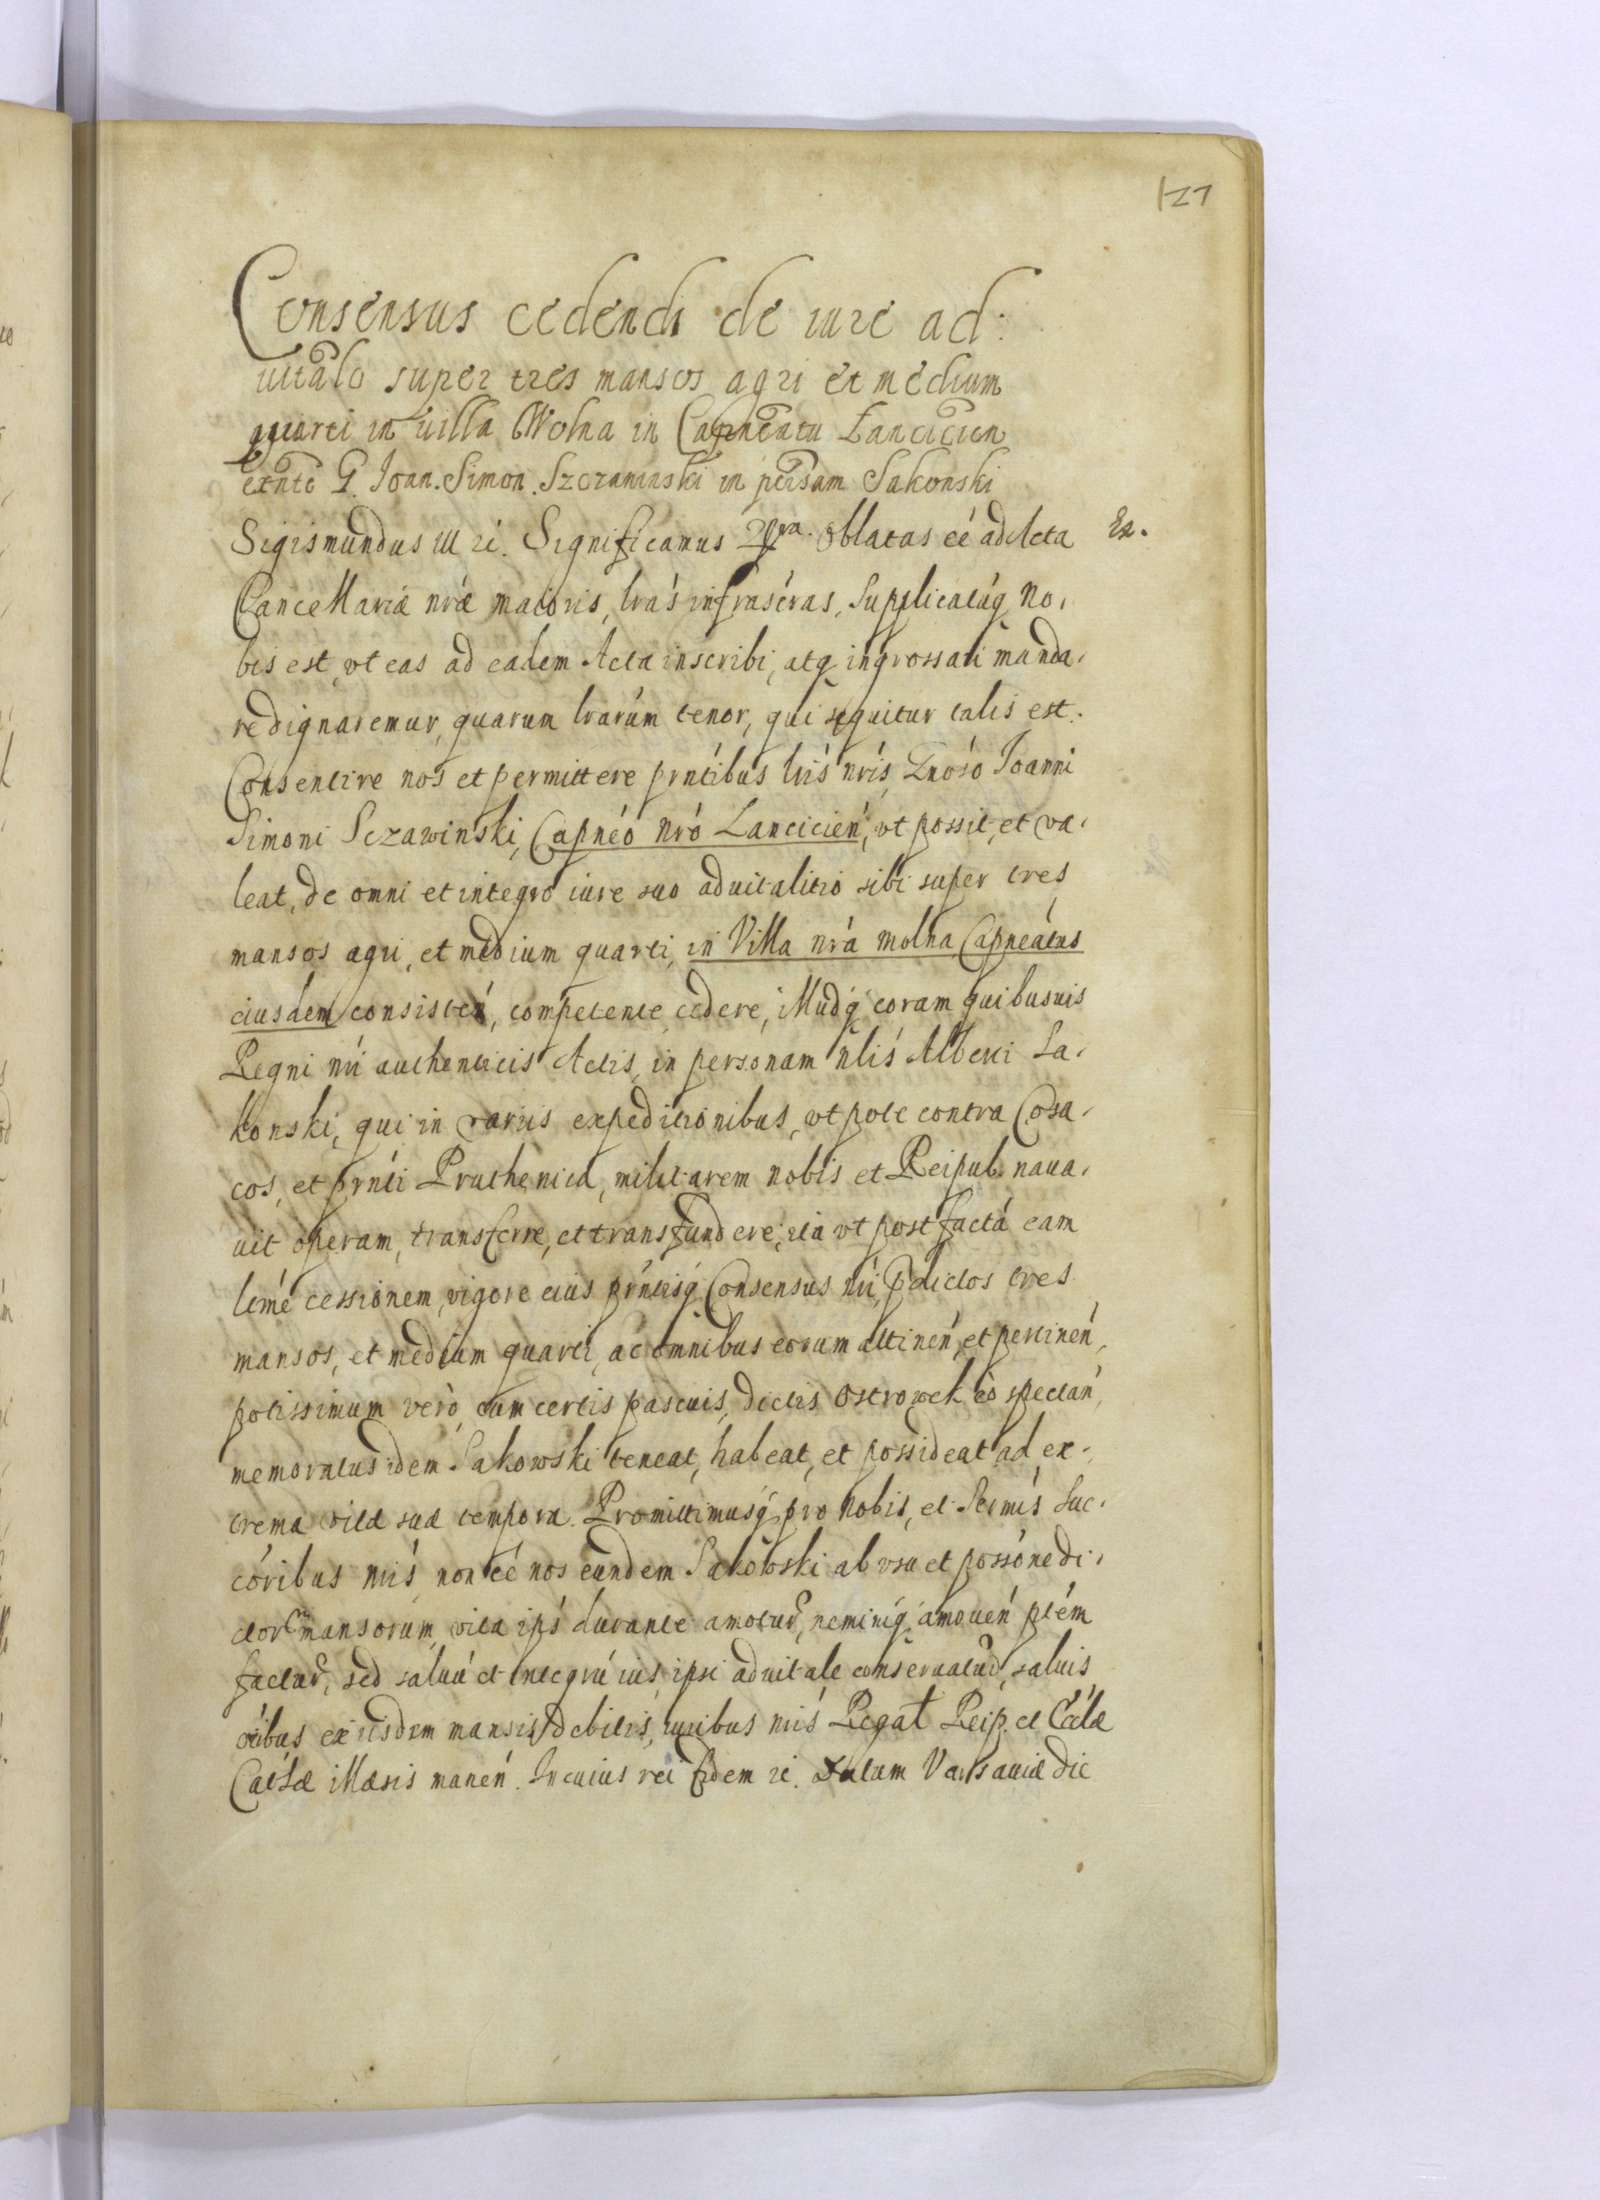 127
Consensus cedendi de iure ad:
uitalo super tres mansos agri et medium
quarti in uilla Wolna in Capneatu Lancicien
G. Joan. Simon. Szczawinski in persam Sakonski
Sigismundus III rć. Significamus Oblatas eé ad Acta Ex.
Cancellariæ nrǽ maioris, lrás infrascras, Supplicatúq no,
bis est, vt eas ad eadem Acta inscribi, atq ingrossari manda,
re dignaremur, quarum lrarúm tenor, qui sequitur talis est.
Consentire nos et permittere prntibus lris nris, Gnóso Joanni
Simoni Sczawinski, Capnéo nró Lancicień, vt possit, et va,
leat, de omni et integro iure suo aduitalitio sibi super tres
mansos agri, et medium quarti, in Villa nrá Molna Capneátus
eiusdem consisteń, competente cedere, illudq coram quibusuis
Regni nri authenticis Actis, in personam nlis Alberti Sa,
konski, qui in variis expeditionibus, vtpote contra Cosa,
cos, et prnti Pruthenica, militarem nobis et Reipub. naua,
uit operam, transferre, et transfundere, ita vt post factá eam
ltmé cessionem, vigore eius prntisq Consensus nri, pdictos tres
mansos, et medium quarti, ac omnibus eorum attineń, et pertineń,
potissimum verò cum certis pascuis, dictis Ostrowek eò spectań,
memoratus idem Sakowski teneat, habeat, et possideat ad ex,
trema vitæ suæ tempora. Promittimusq pro nobis, et Sermis Suc,
córibus nris non eé nos eundem Sakowski ab vsu et possóne di,
ctor mansorum, vita ipś durante amotur, neminiq amoueń ptém
factur, sed saluú et integrú ius ipsi aduitale conseruatur, saluis
óibus ex iisdem mansis debitis, iuribus nris Regal Reip. et Eccl̃æ
Cathæ illæsis maneń. In cuius rei fidem rć. Datum Varsauiæ die